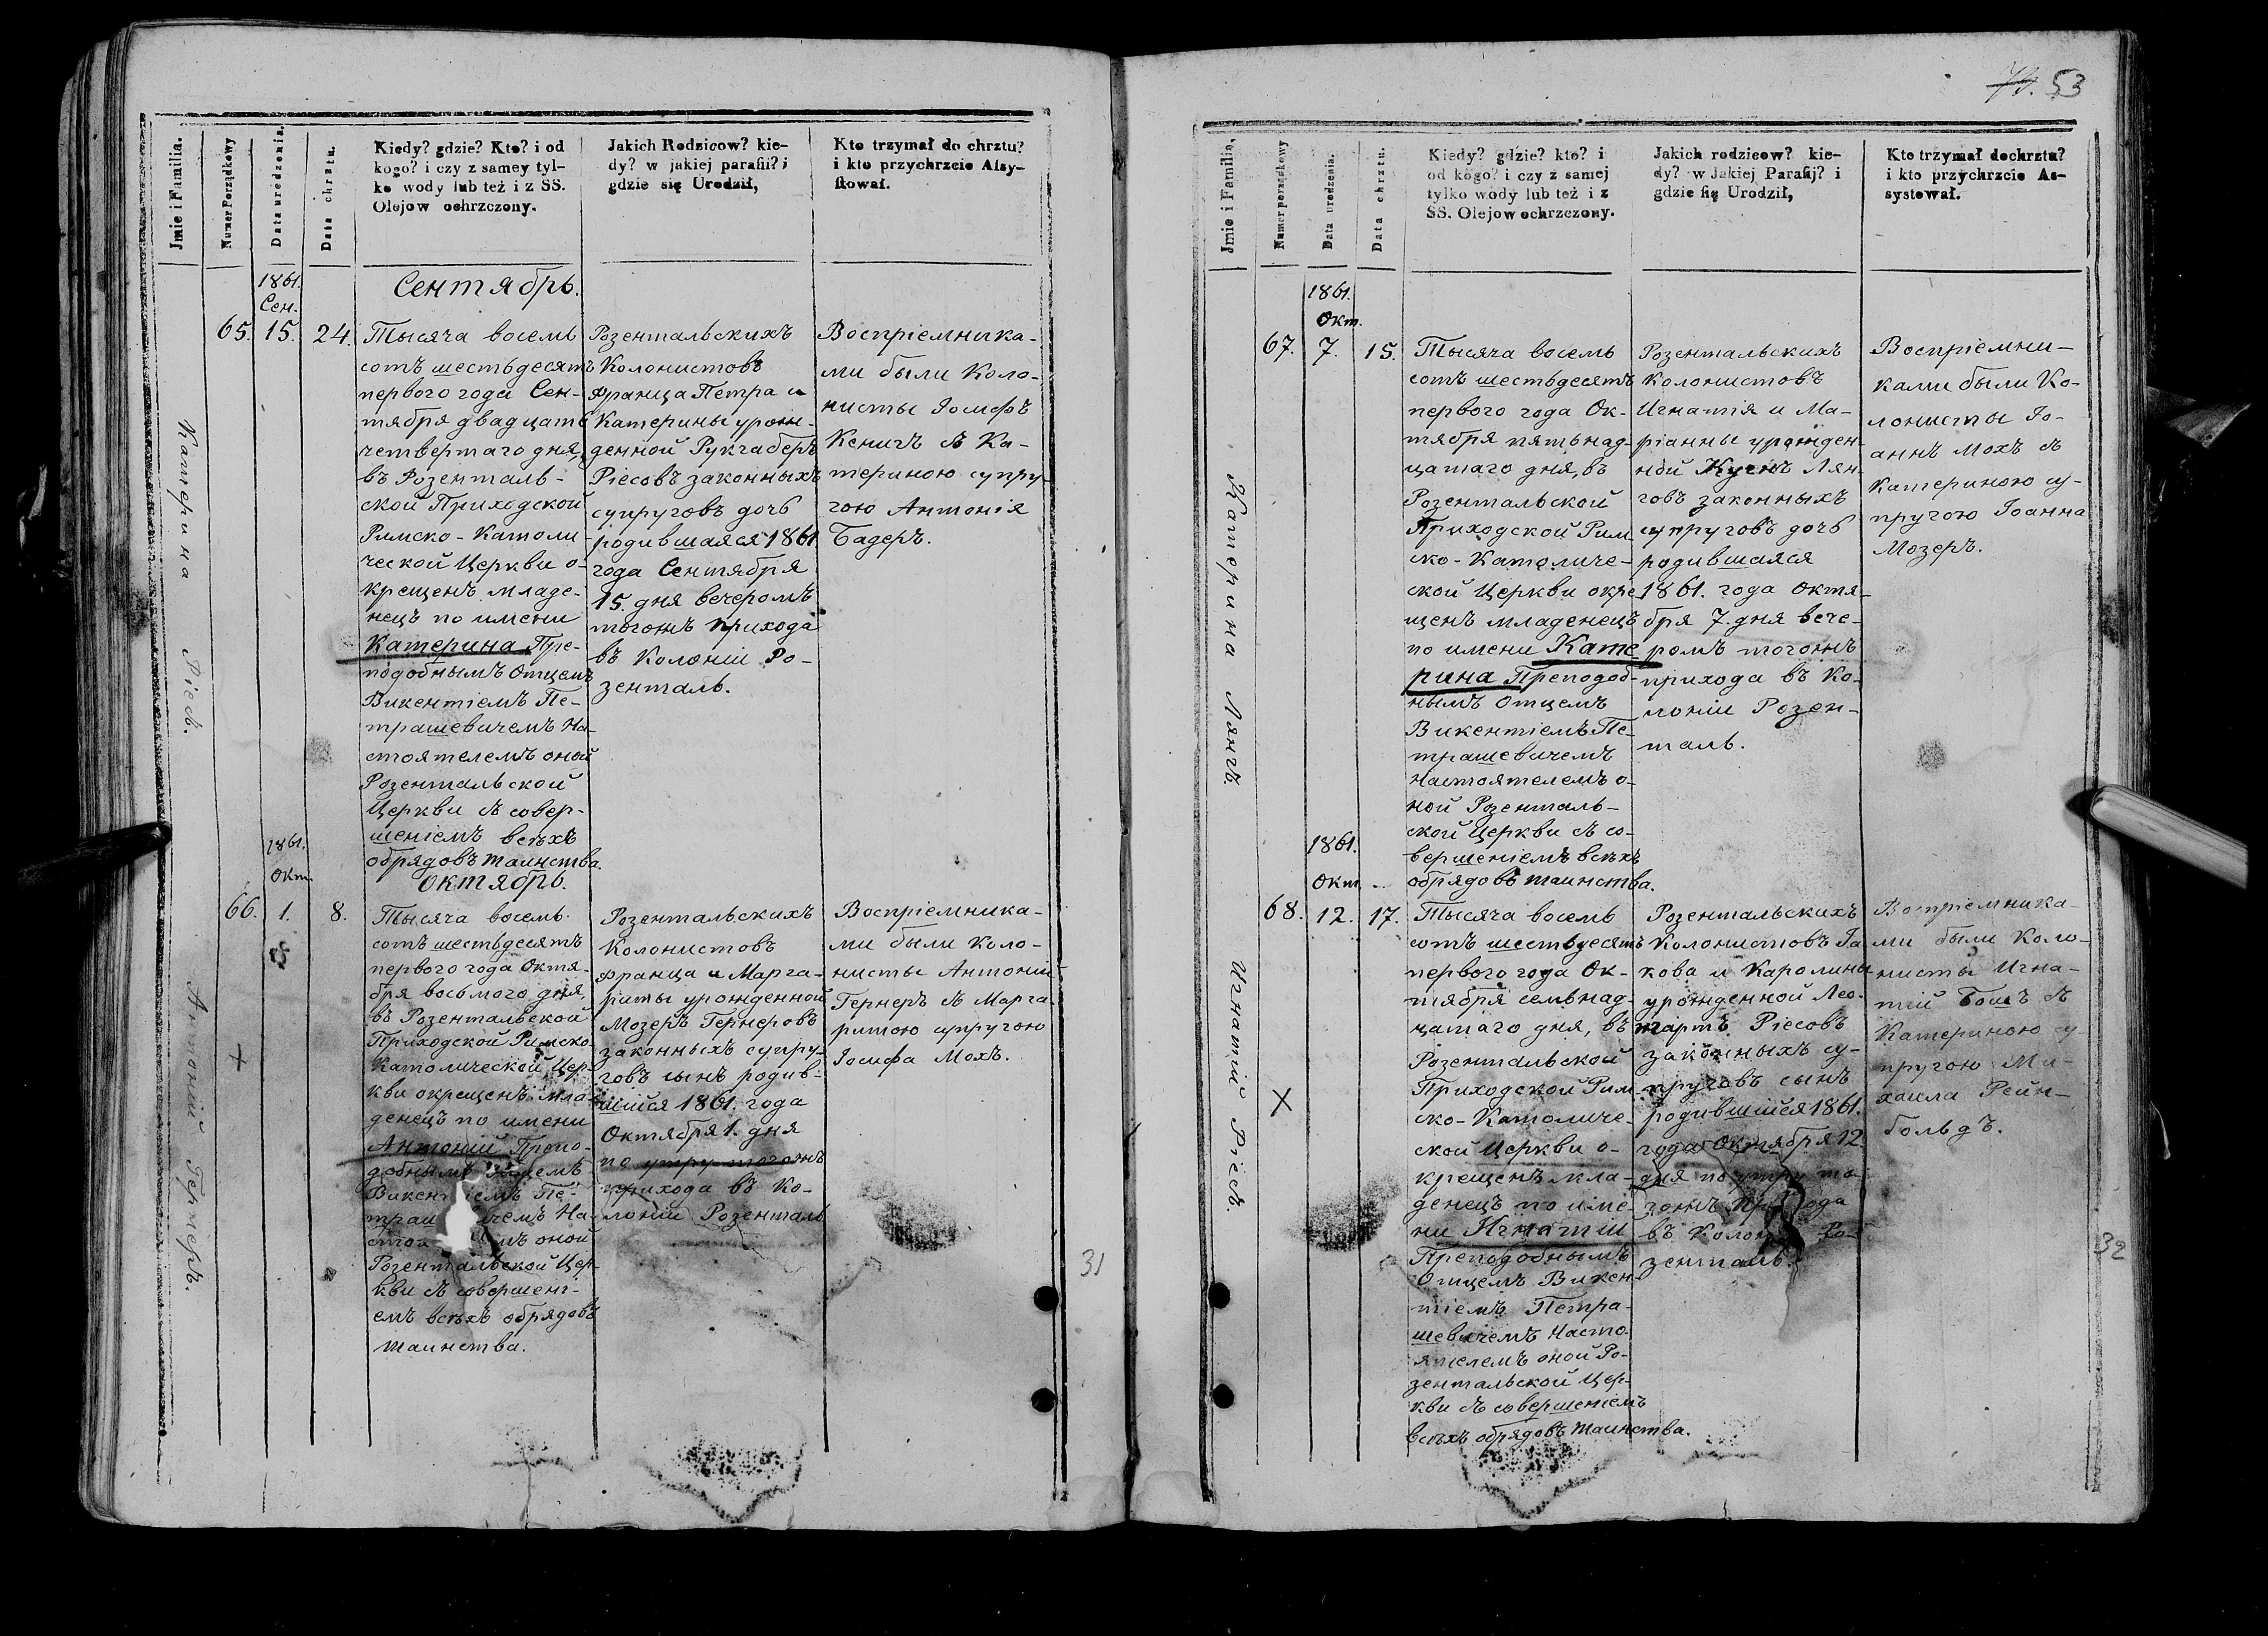 Jmie i Familia.
Numer Porządkowy
Data urodzenia.
Data chrztu.
Kiedy? gdzie? Kto? i od
kogo? i czy z samey tyl-
ko wody lub też i z SS.
Olejow ochrzczony.
Jakich Rodzicow? kie-
dy? w jakiej parafii? i
gdzie się Urodził,
Kto trzymał do chrztu?
i kto przychrzcie Assy-
stował.
Катерина Ріесъ.
1861.
Сен.
65. 15. 24.
Сентябрь.
Тысяча восемь
сотъ шестьдесятъ
первого года Сен-
тября двадцать
четвертаго дня,
въ Розенталь-
ской Приходской
Римско-Католи
ческой Церкви о-
крещенъ младе-
нецъ по имени
Катерина Пре-
подобнымъ Отцемъ
Викентіемъ Пе-
трашевичемъ На-
стоятелемъ оной
Розентальской
Церкви съ совер-
шеніемъ всѣхъ
обрядовъ таинства.
Розентальскихъ
Колонистовъ
Франца Петра и
Катерины урож-
денной Рукгаберъ
Ріесовъ законныхъ
супруговъ дочь
родившаяся 1861.
года Сентября
15. дня вечеромъ
тогожъ прихода
въ Колоніи Ро-
зенталь.
Воспріемника-
ми были Коло-
нисты Іосифъ
Кеничъ съ Ка-
териною супру-
гою Антонія
Бадеръ.
Антоній Гернеръ.
1861.
Окт.
66. 1. 8.
Октябрь.
Тысяча восемь
сотъ шестьдесятъ
первого года Октя-
бря восьмого дня,
въ Розентальской
Приходской Римско
Католической Цер-
кви окрещенъ мла-
денецъ по имени
Антоній Препо-
добнымъ
Пе-
На-
оной
Розентальской Цер-
кви съ совершені-
емъ всѣхъ обрядовъ
таинства.
Розентальскихъ
Колонистовъ
Франца и Марга-
риты урожденной
Мозеръ Гернеровъ
законныхъ супру-
говъ сынъ родив-
шійся 1861. года
Октября 1. дня
по утру тогожъ
прихода въ Ко-
лоніи Розенталь
Воспріемника-
ми были Коло-
нисты Антоній
Гернеръ съ Марга-
ритою супругою
Іосифа Мохъ.
31
53
Jmie i Familia,
Numer porządkowy
Data urodzenia.
Data chrztu.
Kiedy? gdzie? kto? i
od kogo? i czy z samej
tylko wody lub też i z
SS. Olejow ochrzczony.
Jakich rodzicow? kie-
dy? w Jakiej Parafij? i
gdzie się Urodził,
Kto trzymał dochrztu?
i kto przychrzcie As-
systował.
Катерина Лянгъ.
1861.
Окт.
67. 7. 15.
Тысяча восемь
сотъ шестьдесятъ
первого года Ок-
тября пятьнад-
цатаго дня, въ
Розентальской
Приходской Рим-
ско-Католиче-
ской Церкви окре-
щенъ младенецъ
по имени Кате-
рина Преподоб-
нымъ Отцемъ
Викентіемъ Пе-
трашевичемъ
Настоятелемъ о-
ной Розенталь-
ской Церкви съ со-
вершеніемъ всѣхъ
обрядовъ таинства.
Розентальскихъ
Колонистовъ
Игнатія и Ма-
ріанны урожден-
ной Лян-
говъ законныхъ
супруговъ дочь
родившаяся
1861. года Октя-
бря 7. дня вече-
ромъ тогожъ
прихода въ Ко-
лоніи Розен-
таль.
Воспріемни-
ками были Ко-
лонисты Іо-
аннъ Мохъ съ
Катериною су-
пругою Іоанна
Мозеръ.
Игнатій Ріесъ.
1861.
Окт.
68. 12. 17.
Тысяча восемь
сотъ шестьдесятъ
первого года Ок-
тября семьнад-
цатаго дня, въ
Розентальской
Приходской Рим-
ско-Католиче-
ской Церкви о-
крещенъ мла-
денецъ по име-
ни Игнатій
Преподобнымъ
Отцемъ Викен-
тіемъ Петра-
шевичемъ Насто-
ятелемъ оной Ро-
зентальской Цер-
кви съ совершеніемъ
всѣхъ обрядовъ таинства.
Розентальскихъ
Колонистовъ Іа
кова и Каролины
урожденной Лео-
гартъ Ріесовъ
законныхъ су-
пруговъ сынъ
родившійся 1861.
года Октября 12
дня по утру то-
въ Ро-
зенталь.
Воспріемника-
ми были Коло-
нисты Игна-
тій Бошъ съ
Катериною су-
пругою Ми-
хаила Рейн-
больдъ.
32